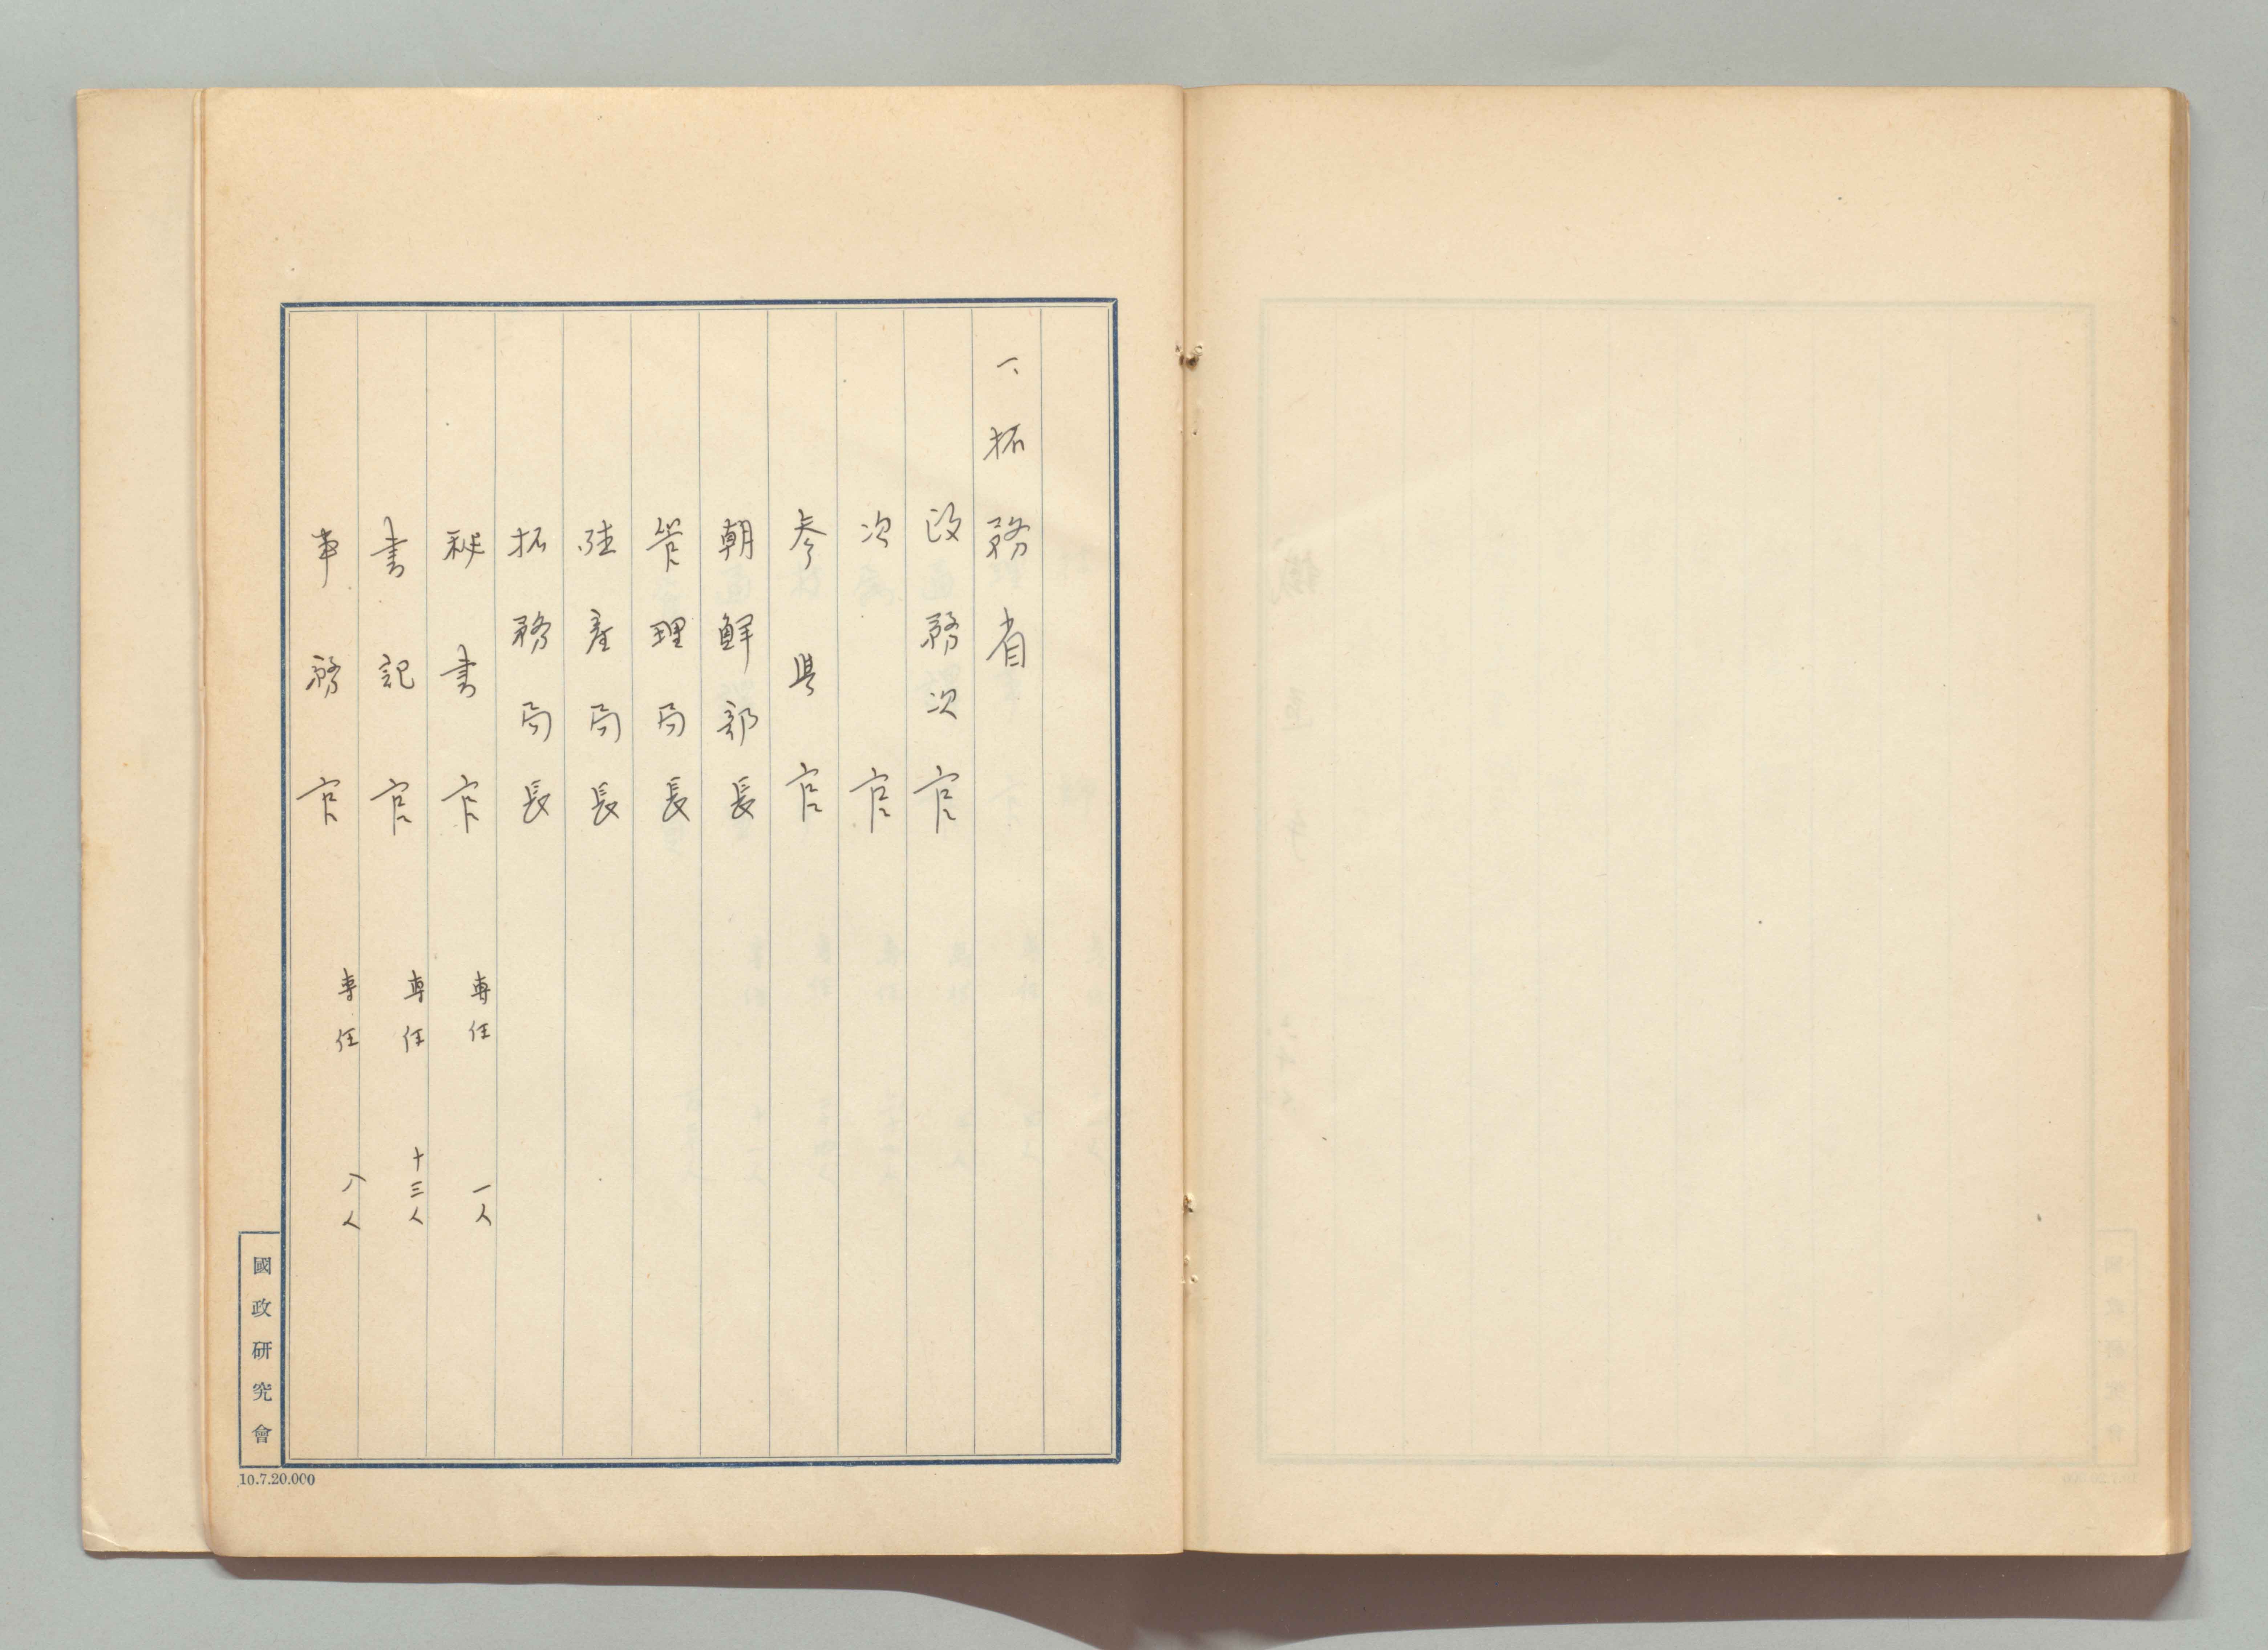 一、拓務省
政務次官
次官
参与官
朝鮮部長
管理局長
殖産局長
拓務局長
秘書官 専任 一人
書記官 専任 十三人
事務官 専任 八人
國政研究會
10.7.20.000